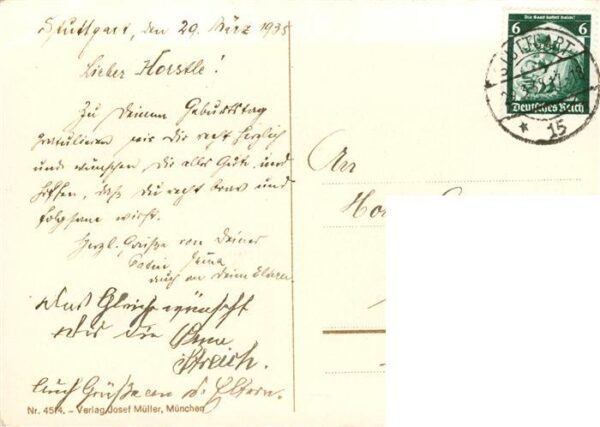 Stuttgart, den 29. März 1935
Lieber Horstle!
Zu Deinem Geburtstag
gratulieren wir Dir recht herzlich
und wünschen Dir alles Gute und
hoffen, daß Du recht brav und
folgsam wirst.
Herzl. Grüße von Deiner
auch an Deine Eltern
Das Gleiche wünscht
Dir die Oma
Streich.
Auch Grüße an d. Eltern.
Nr. 4514. – Verlag Josef Müller, München
Die Saar kehrt heim!
6 6
Deutsches Reich
STUTTGART
* 15
An